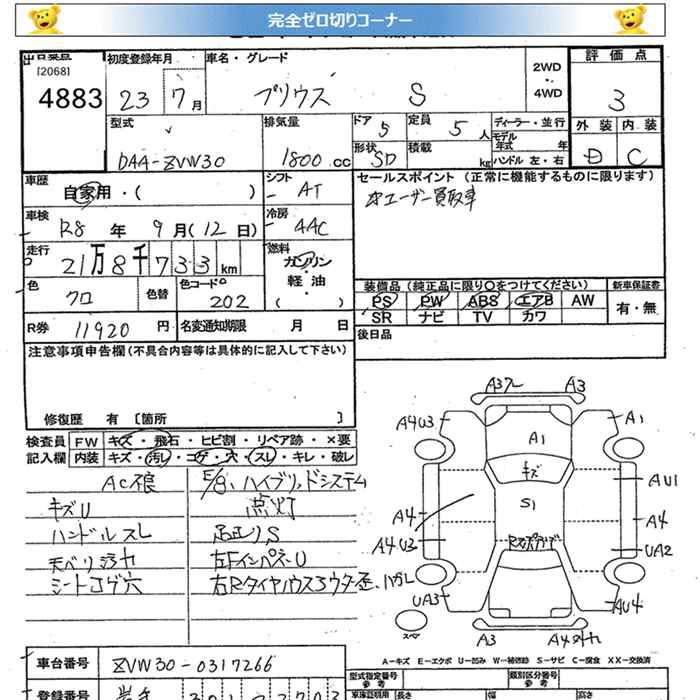 完全ゼロ切りコーナー
[2068]
4883
初度登録年月
23 7月
車名・グレード
プリウス S
2WD
・
4WD
評価点
3
型式
DAA-ZVW30
排気量
1800 cc
ドア 5
定員 5 人
形状 5D
積載 kg
ディーラー・並行
モデル年式 年
ハンドル 左・右
外装 内装
D C
車歴
自家用・( )
シフト
AT
セールスポイント (正常に機能するものに限ります)
ユーザー買取車
車検
R8 年 9 月(12 日)
冷房
AAC
走行
21万8千733km
燃料
ガソリン
軽油
( )
色
クロ
色替
色コードNo
202
装備品 (純正品に限り○をつけてください)
新車保証書
PS PW ABS エアB AW
SR ナビ TV カワ
有・無
R券 11920 円
名変通知期限 月 日
後日品
注意事項申告欄(不具合内容等は具体的に記入して下さい)
修復歴 有 [箇所 ]
検査員記入欄
FW キズ・飛石・ヒビ割・リペア跡・×要
内装 キズ・汚レ・コゲ・穴・スレ・キレ・破レ
AC不良
キズU
ハンドルスレ
シートコゲ穴
E/g、ハイブリッドシステム
点灯
左FインパネU
A3 A3
A4U3 A1
A1
キズ
S1
AU1
A4 A4
A4U3 UA2
UA3 AU4
スペア
A3
A-キズ E-エクボ U-凹み W-補修跡 S-サビ C-腐食 XX-交換済
車台番号 ZVW30-0317266
登録番号 岩手 301
型式指定番号
参考
類別区分番号
参考
長さ 幅 高さ